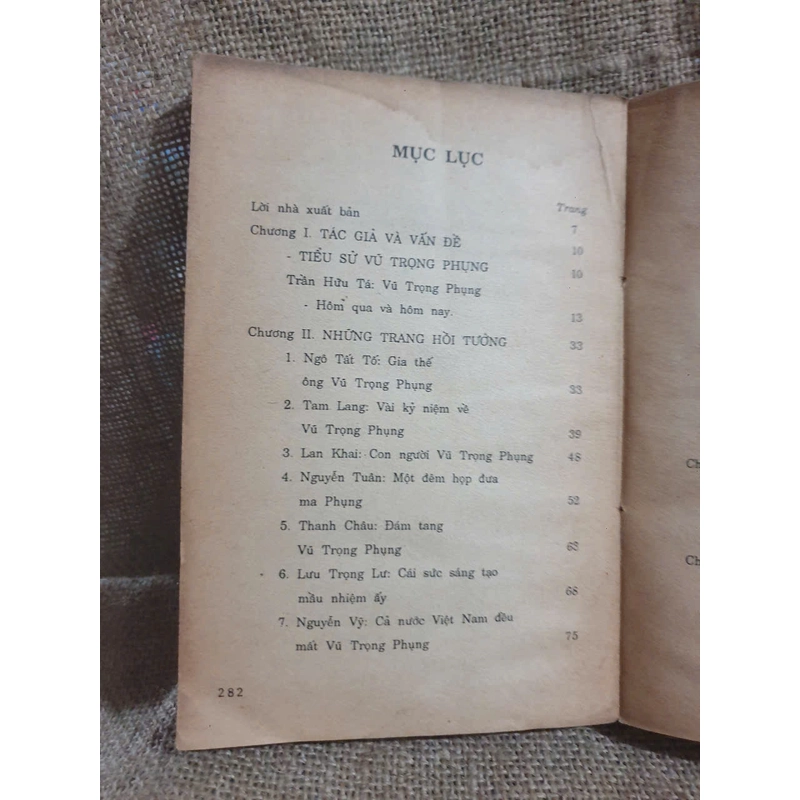 MỤC LỤC
Trang
Lời nhà xuất bản 7
Chương I. TÁC GIẢ VÀ VẤN ĐỀ 10
- TIỂU SỬ VŨ TRỌNG PHỤNG 10
Trần Hữu Tá: Vũ Trọng Phụng
- Hôm qua và hôm nay. 13
Chương II. NHỮNG TRANG HỒI TƯỞNG 33
1. Ngô Tất Tố: Gia thế
ông Vũ Trọng Phụng 33
2. Tam Lang: Vài kỷ niệm về
Vũ Trọng Phụng 39
3. Lan Khai: Con người Vũ Trọng Phụng 48
4. Nguyễn Tuân: Một đêm họp đưa
ma Phụng 52
5. Thanh Châu: Đám tang
Vũ Trọng Phụng 63
6. Lưu Trọng Lư: Cái sức sáng tạo
mầu nhiệm ấy 68
7. Nguyễn Vỹ: Cả nước Việt Nam đều
mất Vũ Trọng Phụng 75
282
Ch
Ch